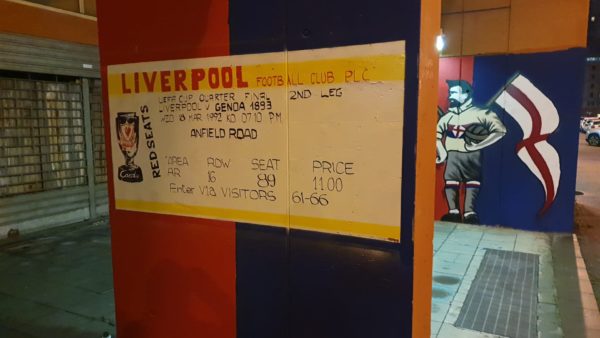 LIVERPOOL FOOTBALL CLUB PLC
UEFA CUP QUARTER FINAL 2ND LEG
LIVERPOOL V GENOA 1893
WED 18 MAR 1992 KO 07.10 PM
ANFIELD ROAD
RED SEATS
Candy
AREA ROW SEAT PRICE
AR 16 89 11.00
Enter VIA VISITORS 61-66